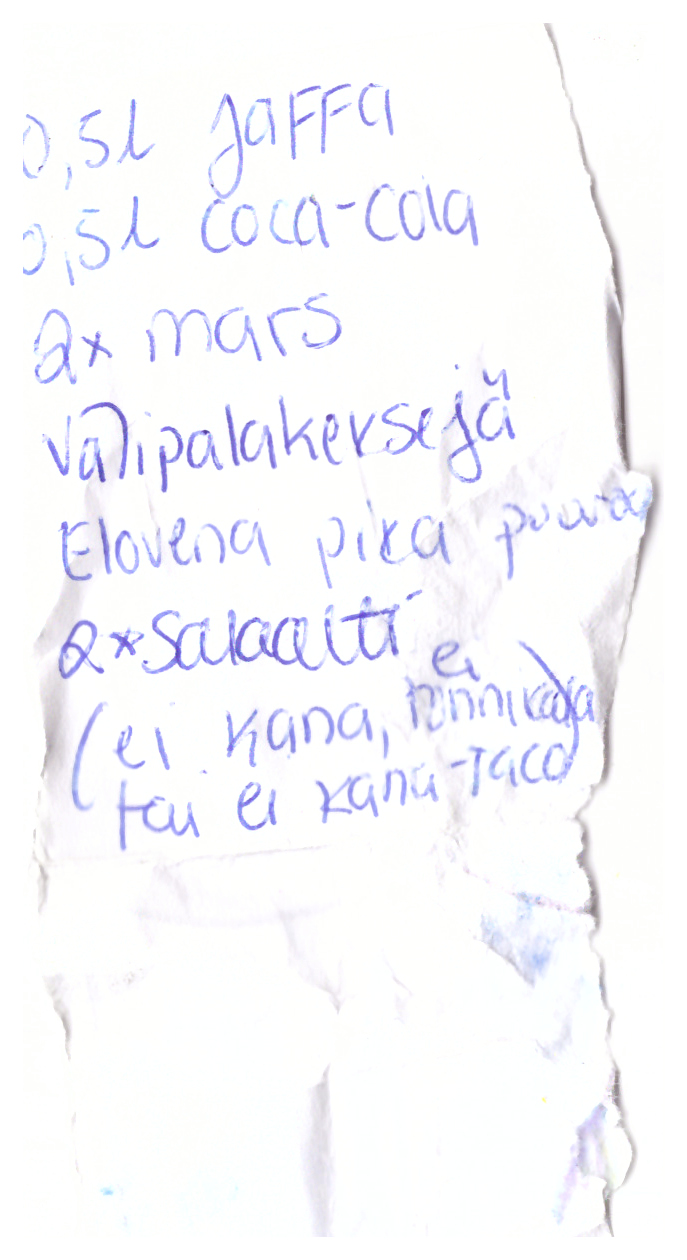 0,5l Jaffa
0,5l coca-cola
2x mars
Välipalakeksejä
Elovena pika puuroa
2x salaatti
(ei kana, ei tonnikala
tai ei kana-taco)